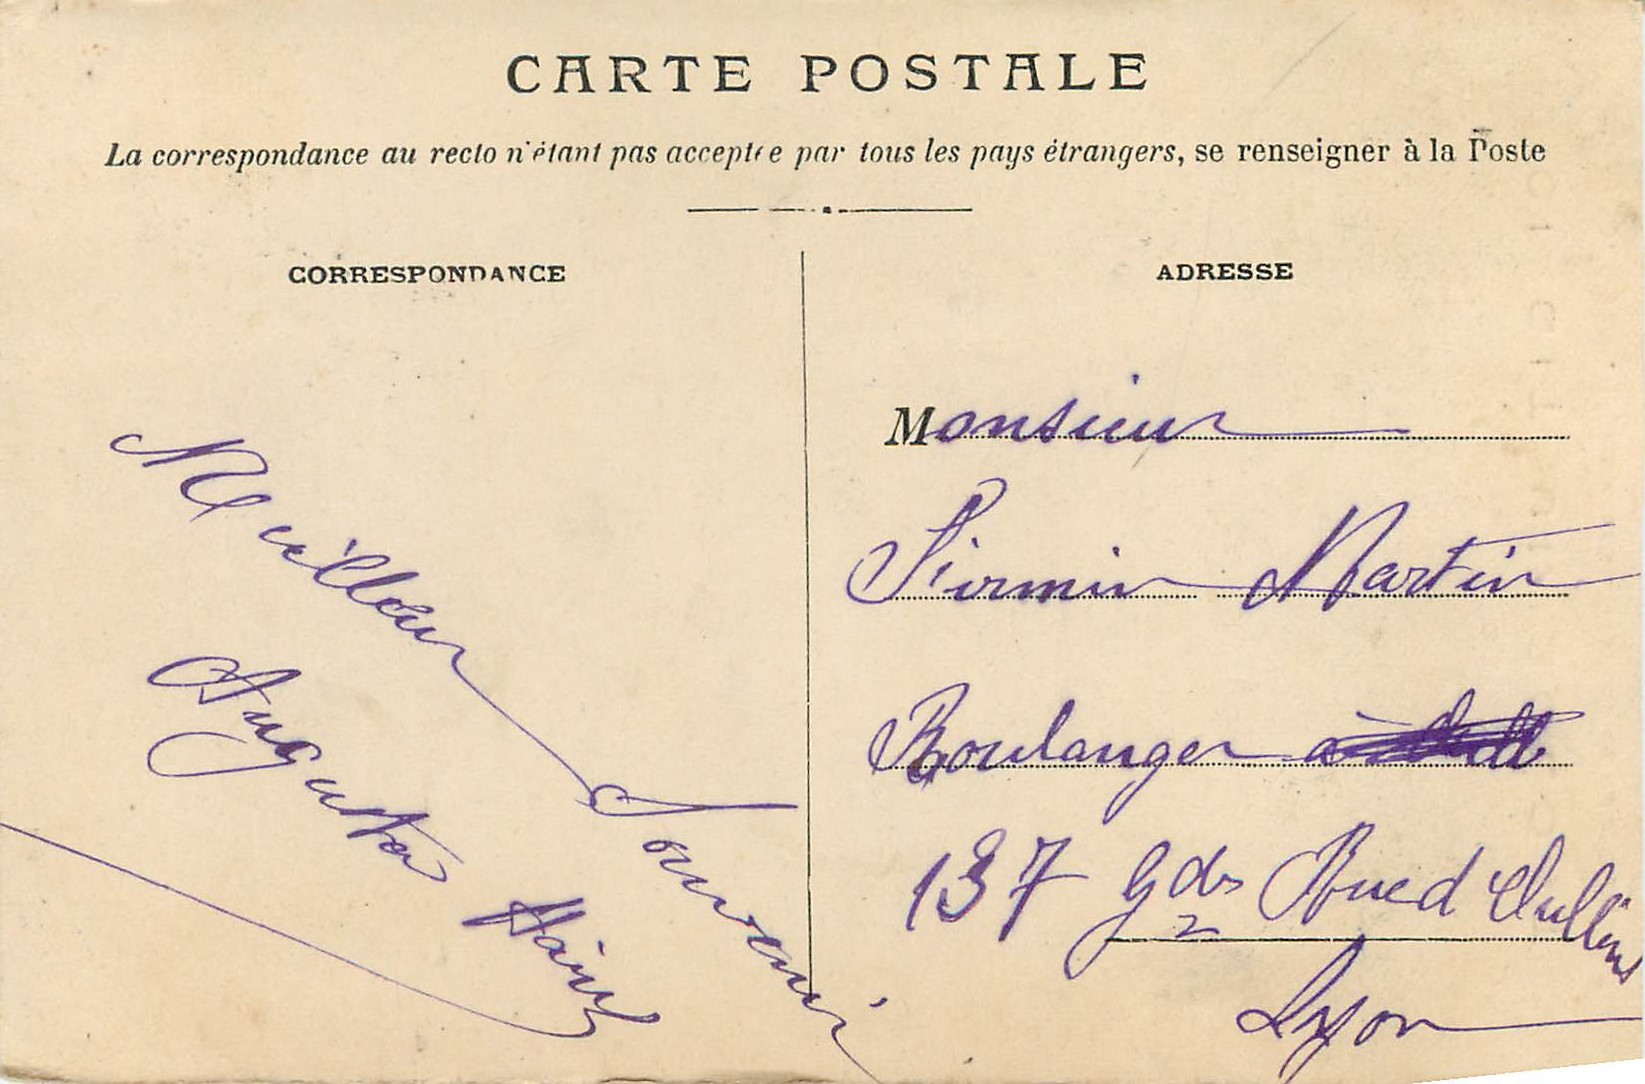 CARTE POSTALE
La correspondance au recto n'étant pas acceptée par tous les pays étrangers, se renseigner à la Poste
CORRESPONDANCE
Meilleur Souvenir
Augusta
ADRESSE
Monsieur
Firmin Martin
Boulanger à
137 Gde Rue d'Oullins
Lyon